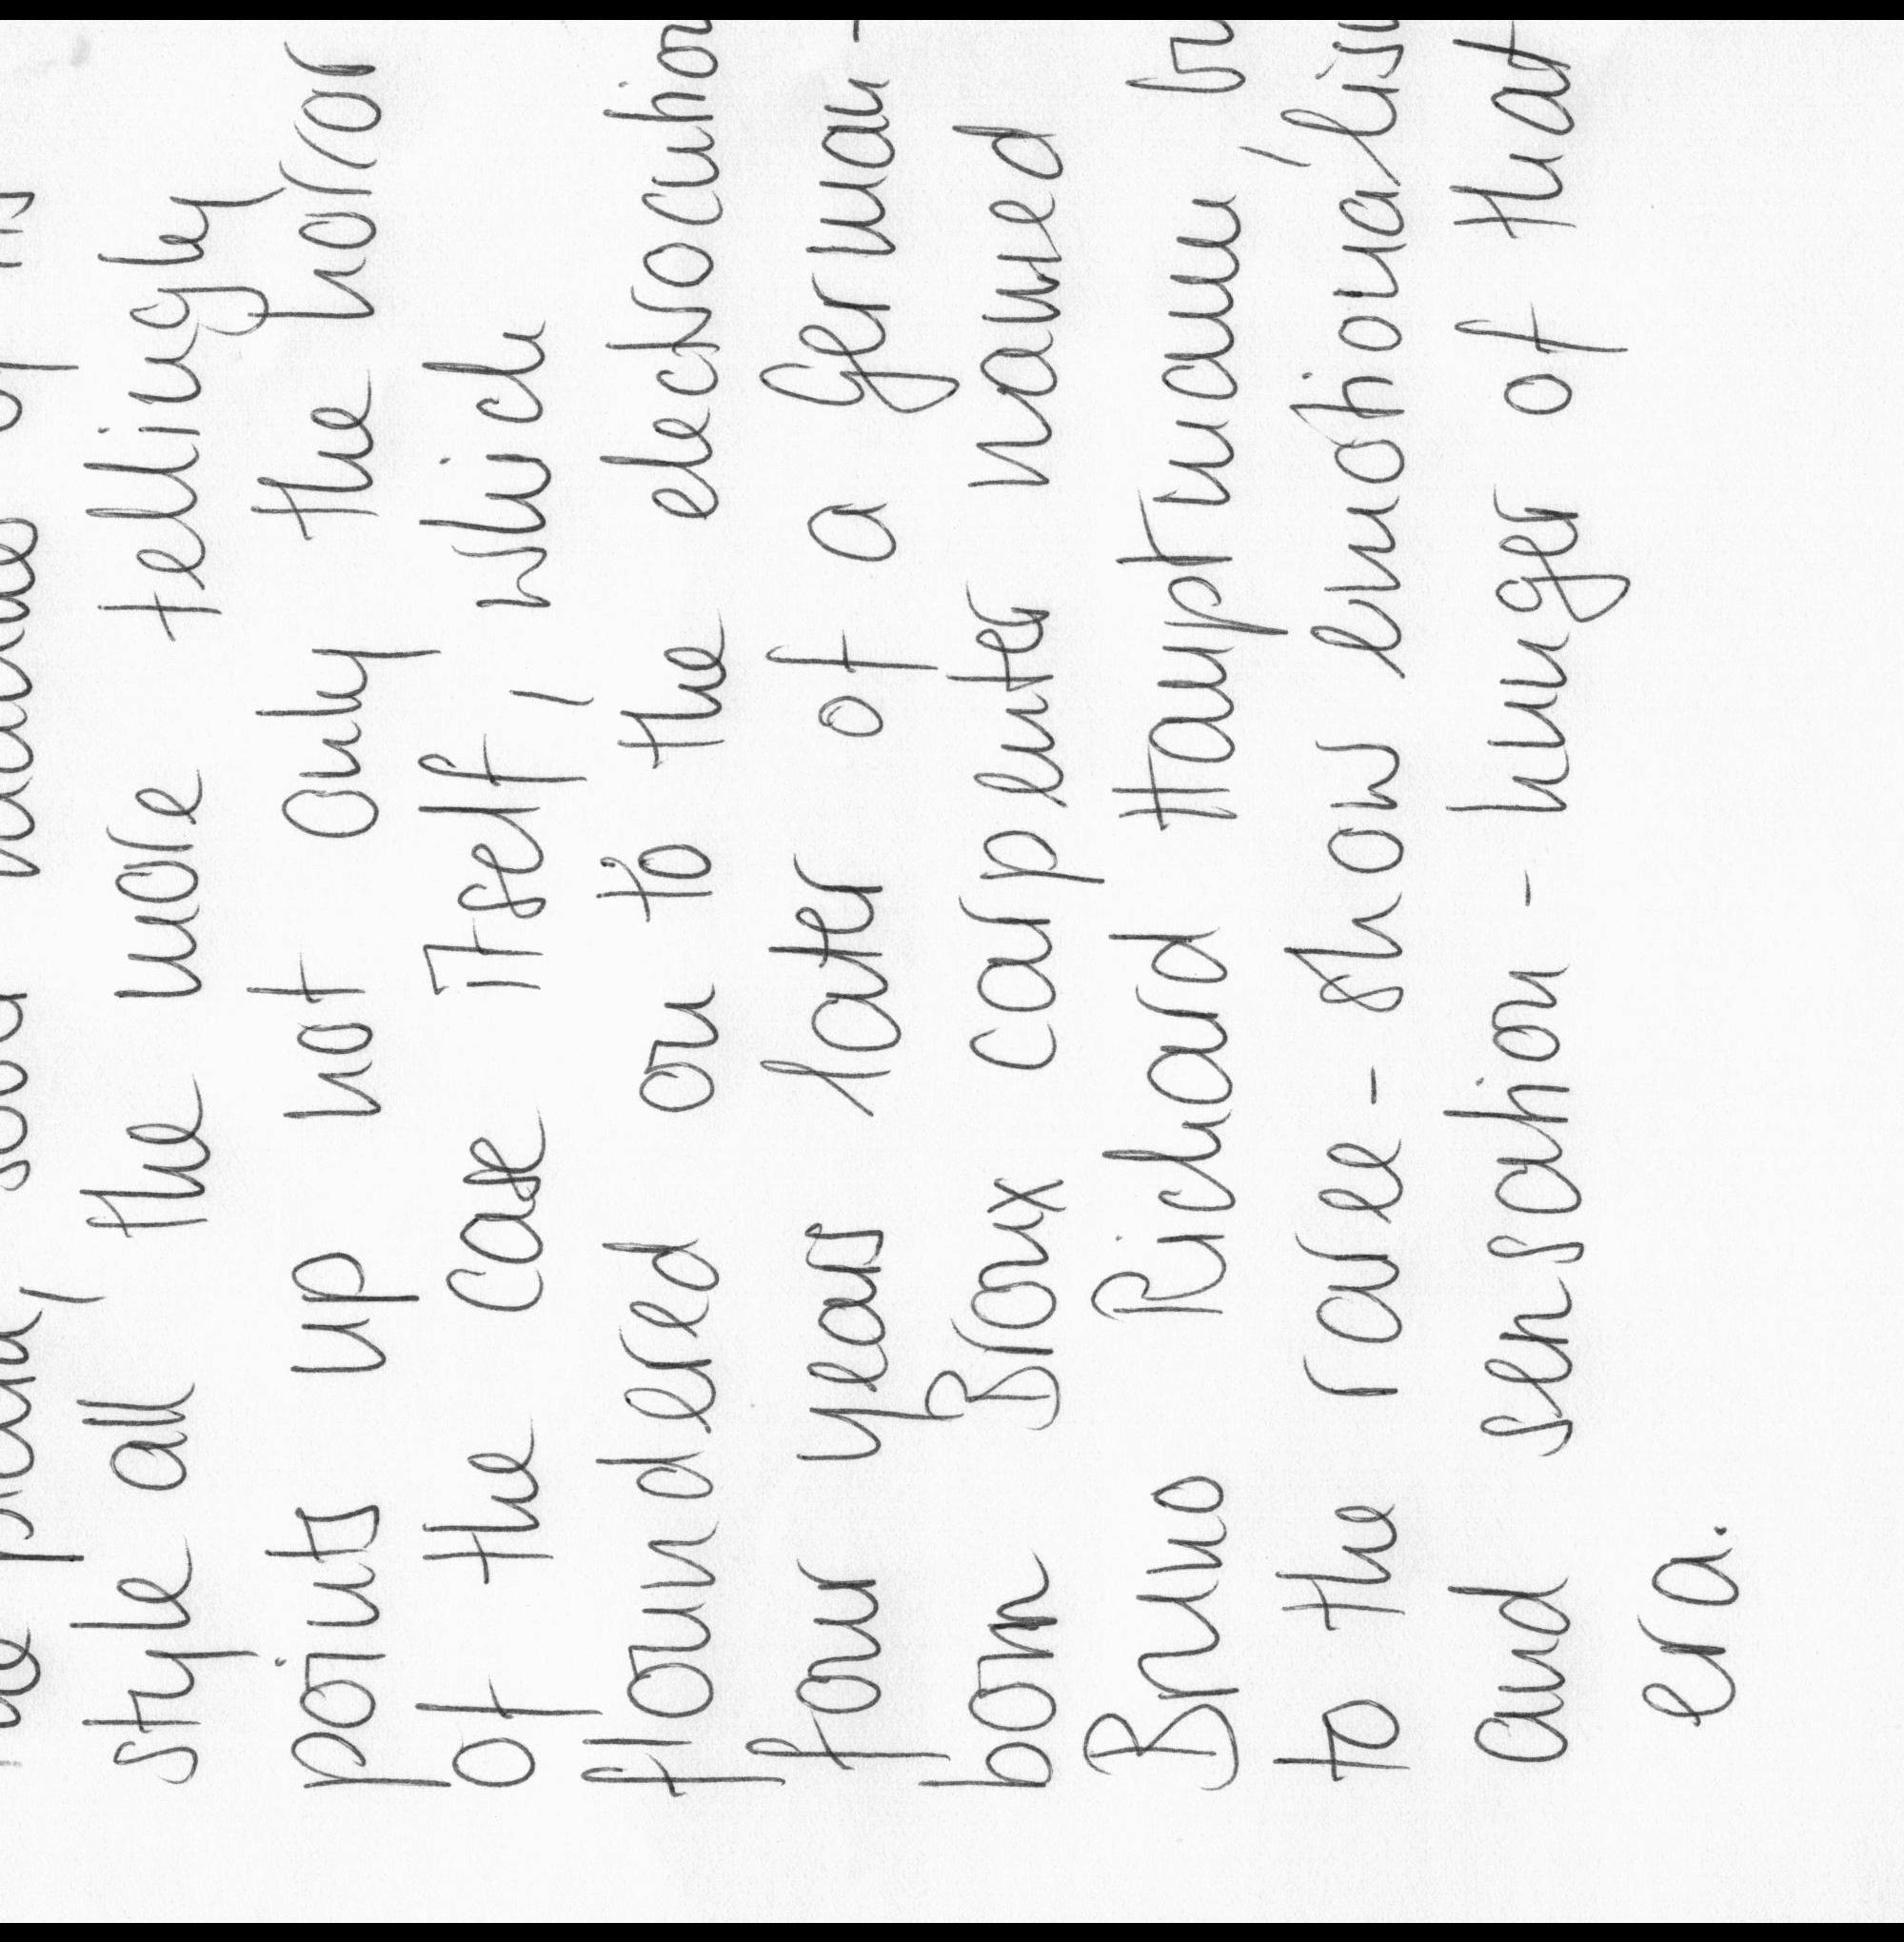 style all, the more tellingly
points up not only the horror
of the case itself, which
floundered on to the electrocution
four years later of a German-
born Bronx carpenter named
Bruno Richard Hauptmann,
to the raree-show emotionalism
and sensation-hunger of that
era.